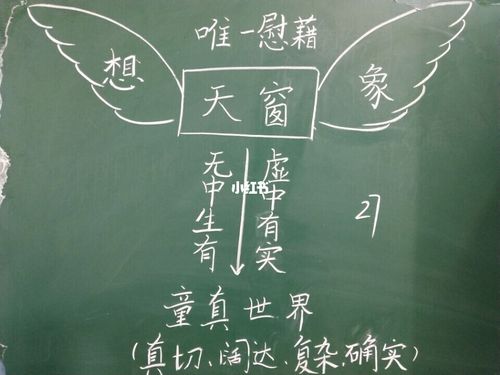 唯一慰藉
想
天窗
象
无中生有
虚中有实
小红书
27
童真世界
(真切、阔达、复杂、确实)